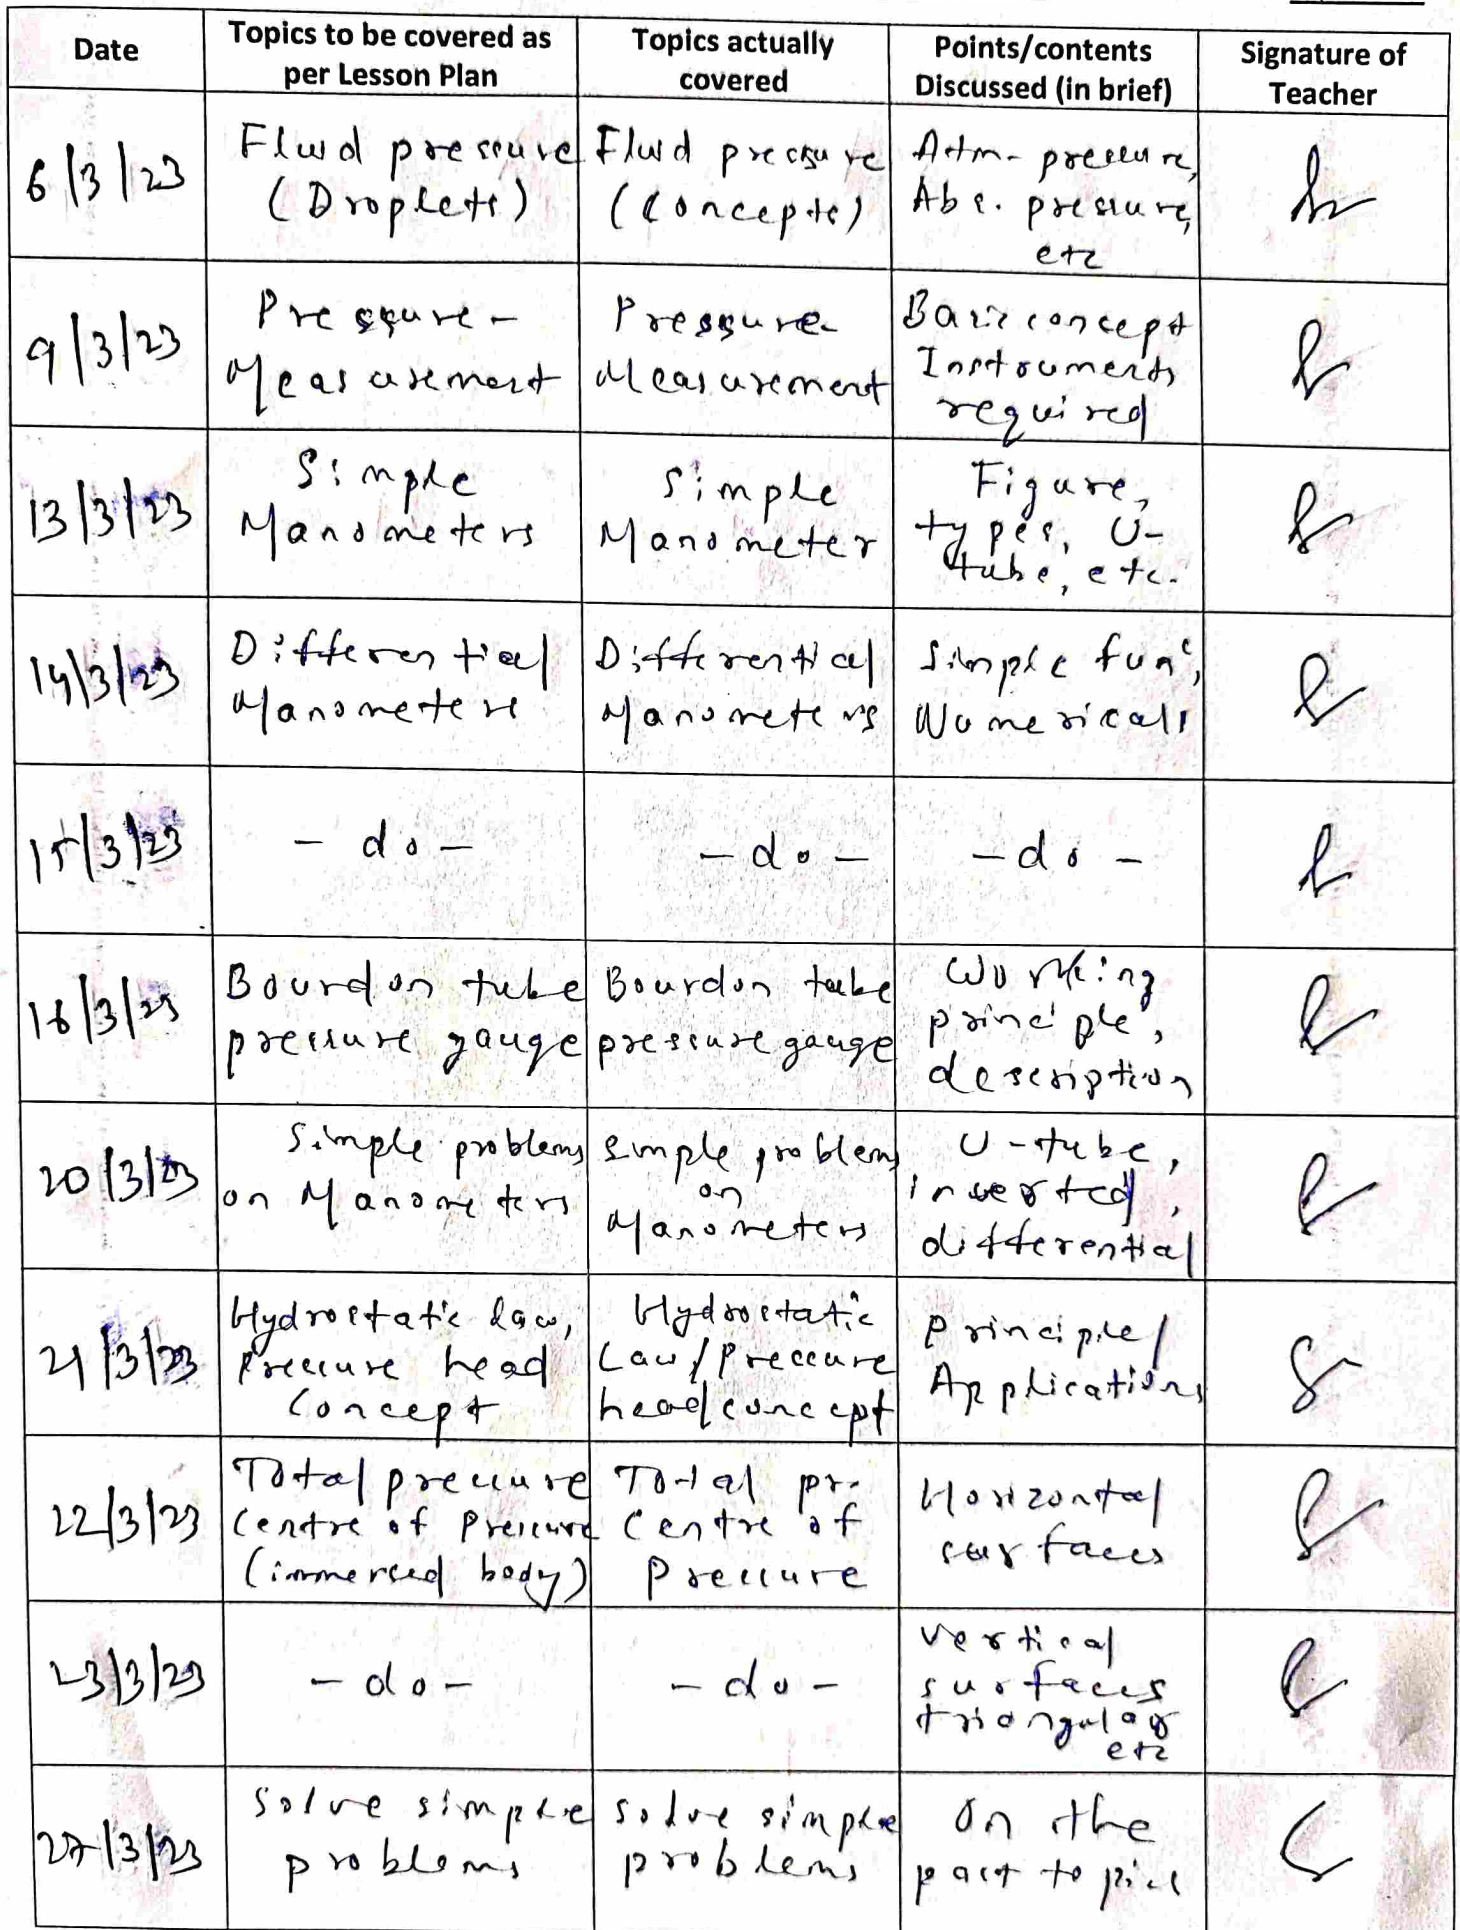 Date
Topics to be covered as
per Lesson Plan
Topics actually
covered
Points/contents
Discussed (in brief)
Signature of
Teacher
6/3/23
Fluid pressure
(Droplets)
Fluid pressure
(Concepts)
Atm- pressure,
Abs. pressure,
etc
9/3/23
Pressure-
Measurement
Pressure-
Measurement
Basic concept
Instruments
required
13/3/23
Simple
Manometers
Simple
Manometer
Figure,
types, U-
tube, etc.
14/3/23
Differential
Manometers
Differential
Manometers
Simple
Numericals
15/3/23
- do -
- do -
- do -
16/3/23
Bourdon tube
pressure gauge
Bourdon tube
pressure gauge
Working
principle,
description
20/3/23
Simple problems
on Manometers
Simple problems
on
Manometers
U-tube,
inverted,
differential
21/3/23
Hydrostatic law,
Pressure head
Concept
Hydrostatic
Law/Pressure
head concept
Principle/
Applications
22/3/23
Total pressure
Centre of Pressure
(immersed body)
Total pr.
Centre of
Pressure
Horizontal
surfaces
23/3/23
- do -
- do -
Vertical
surfaces
triangular
etc
27/3/23
Solve simple
problems
Solve simple
problems
On the
past topics